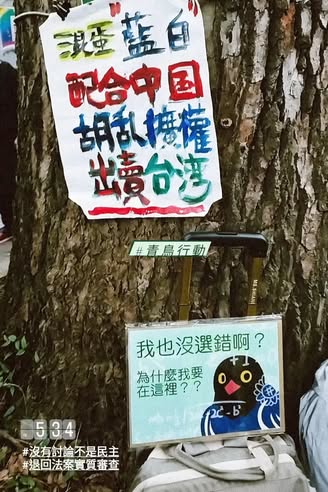 混蛋"藍白"
配合中国
胡乱擴權
出賣台湾
#青鳥行動
我也沒選錯啊?
為什麼我要
在這裡??
534
#沒有討論不是民主
#退回法案實質審查